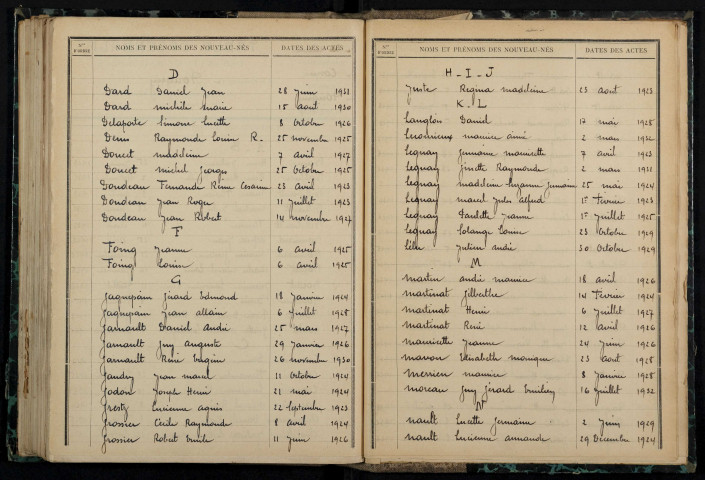 Nos D'ORDRE NOMS ET PRÉNOMS DES NOUVEAU-NÉS DATES DES ACTES
D
Dard Daniel Jean 28 Juin 1931
Dard michèle marie 15 aout 1930
Delaporte Simone Lucette 8 Octobre 1926
Denis Raymonde Louise R. 25 novembre 1925
Doucet madeleine 7 avril 1927
Doucet michel Georges 25 Octobre 1925
Dondeau Fernande Rène Cesarine 23 avril 1923
Dondeau Jean Roger 11 Juillet 1923
Dondeau Jean Robert 14 novembre 1927
F
Foing Jeanne 6 avril 1925
Foing Louise 6 avril 1925
G
Gagnepain Gérard Edmond 18 Janvier 1924
Gagnepain Jean allain 6 Juillet 1928
Garnault Daniel André 25 mars 1927
Garnault Guy Auguste 29 Janvier 1926
Garnault René 26 novembre 1930
Gaudry Jean marcel 11 Octobre 1924
Godon Joseph Henri 21 mai 1924
Lucienne agnès 22 Septembre 1923
Grossier Cécile Raymonde 8 avril 1924
Grossier Robert Emile 11 Juin 1926
Nos D'ORDRE NOMS ET PRÉNOMS DES NOUVEAU-NÉS DATES DES ACTES
H - I - J
Juste Regina madeleine 23 aout 1923
K. L
Langlois Daniel 17 mai 1928
maurice aimé 2 mars 1932
Legnay Germaine mauricette 7 avril 1923
Legnay Ginette Raymonde 2 mars 1931
Legnay madeleine Suzanne Germaine 25 mai 1924
Legnay marcel Jules Alfred 1er Fevrier 1923
Legnay Paulette Jeanne 1er Juillet 1925
Legnay Solange Louise 23 Octobre 1929
Julien 30 Octobre 1929
M
martin andré maurice 18 avril 1926
martinat Gilberthe 14 Fevrier 1924
martinat Henri 6 Juillet 1927
martinat René 12 avril 1926
Jeanne 24 Juin 1926
Elisabeth monique 23 aout 1928
mercier maurice 8 Janvier 1928
moreau Guy Gérard 16 Juillet 1932
N
nault Lucette Germaine 2 Juin 1929
nault Lucienne armande 29 Décembre 1924